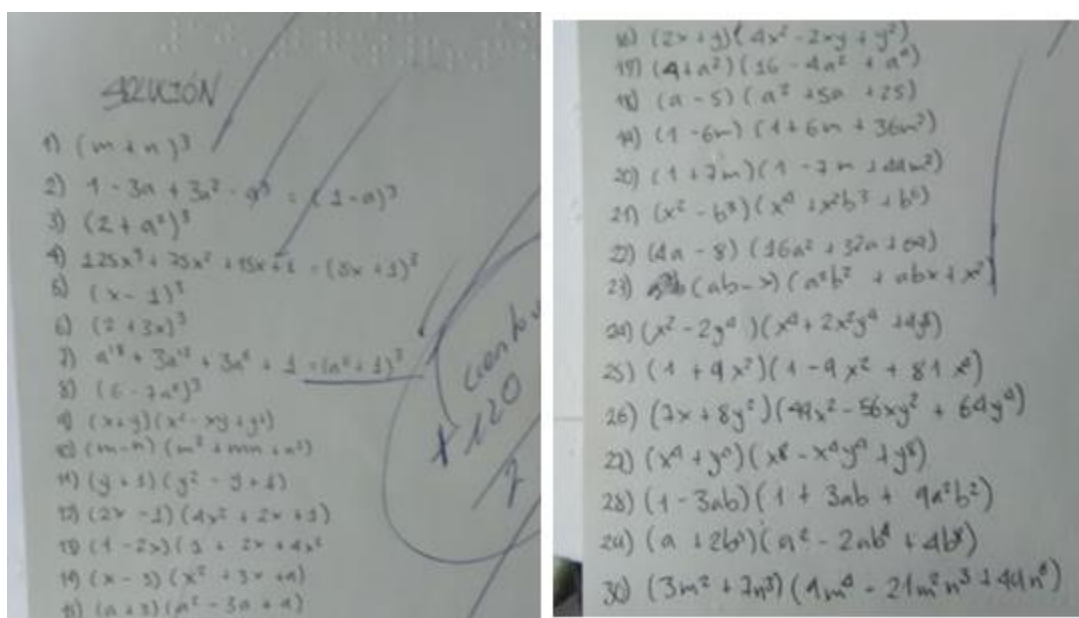 SOLUCIÓN
1) (m + n)³
2) 1 - 3a + 3a² - a³ = (1-a)³
3) (2 + a²)³
4) 125x³ + 75x² + 15x + 1 = (5x + 1)³
5) (x - 1)³
6) (2 + 3x)³
7) a¹⁸ + 3a¹² + 3a⁶ + 1 = (a⁶ + 1)³
8) (6 - 7a²)³
9) (x+y)(x² - xy + y²)
10) (m-n)(m² + mn + n²)
11) (y + 1)(y² - y + 1)
12) (2x - 1)(4x² + 2x + 1)
13) (1 - 2x)(1 + 2x + 4x²
14) (x - 3)(x² + 3x + 9)
15) (a + 3)(a² - 3a + 9)
ciento
120
16) (2x + y)(4x² - 2xy + y²)
17) (4 + a²)(16 - 4a² + a⁴)
18) (a - 5)(a² + 5a + 25)
19) (1 - 6m)(1 + 6m + 36m²)
20) (1 + 7m)(1 - 7m + 49m²)
21) (x² - b³)(x⁴ + x²b³ + b⁶)
22) (4a - 8)(16a² + 32a + 64)
23) (ab - x)(a²b² + abx + x²)
24) (x² - 2y⁴)(x⁴ + 2x²y⁴ + 4y⁸)
25) (1 + 9x²)(1 - 9x² + 81x⁴)
26) (7x + 8y²)(49x² - 56xy² + 64y⁴)
27) (x⁴ + y⁴)(x⁸ - x⁴y⁴ + y⁸)
28) (1 - 3ab)(1 + 3ab + 9a²b²)
29) (a + 2b⁴)(a² - 2ab⁴ + 4b⁸)
30) (3m² + 7n³)(9m⁴ - 21m²n³ + 49n⁶)